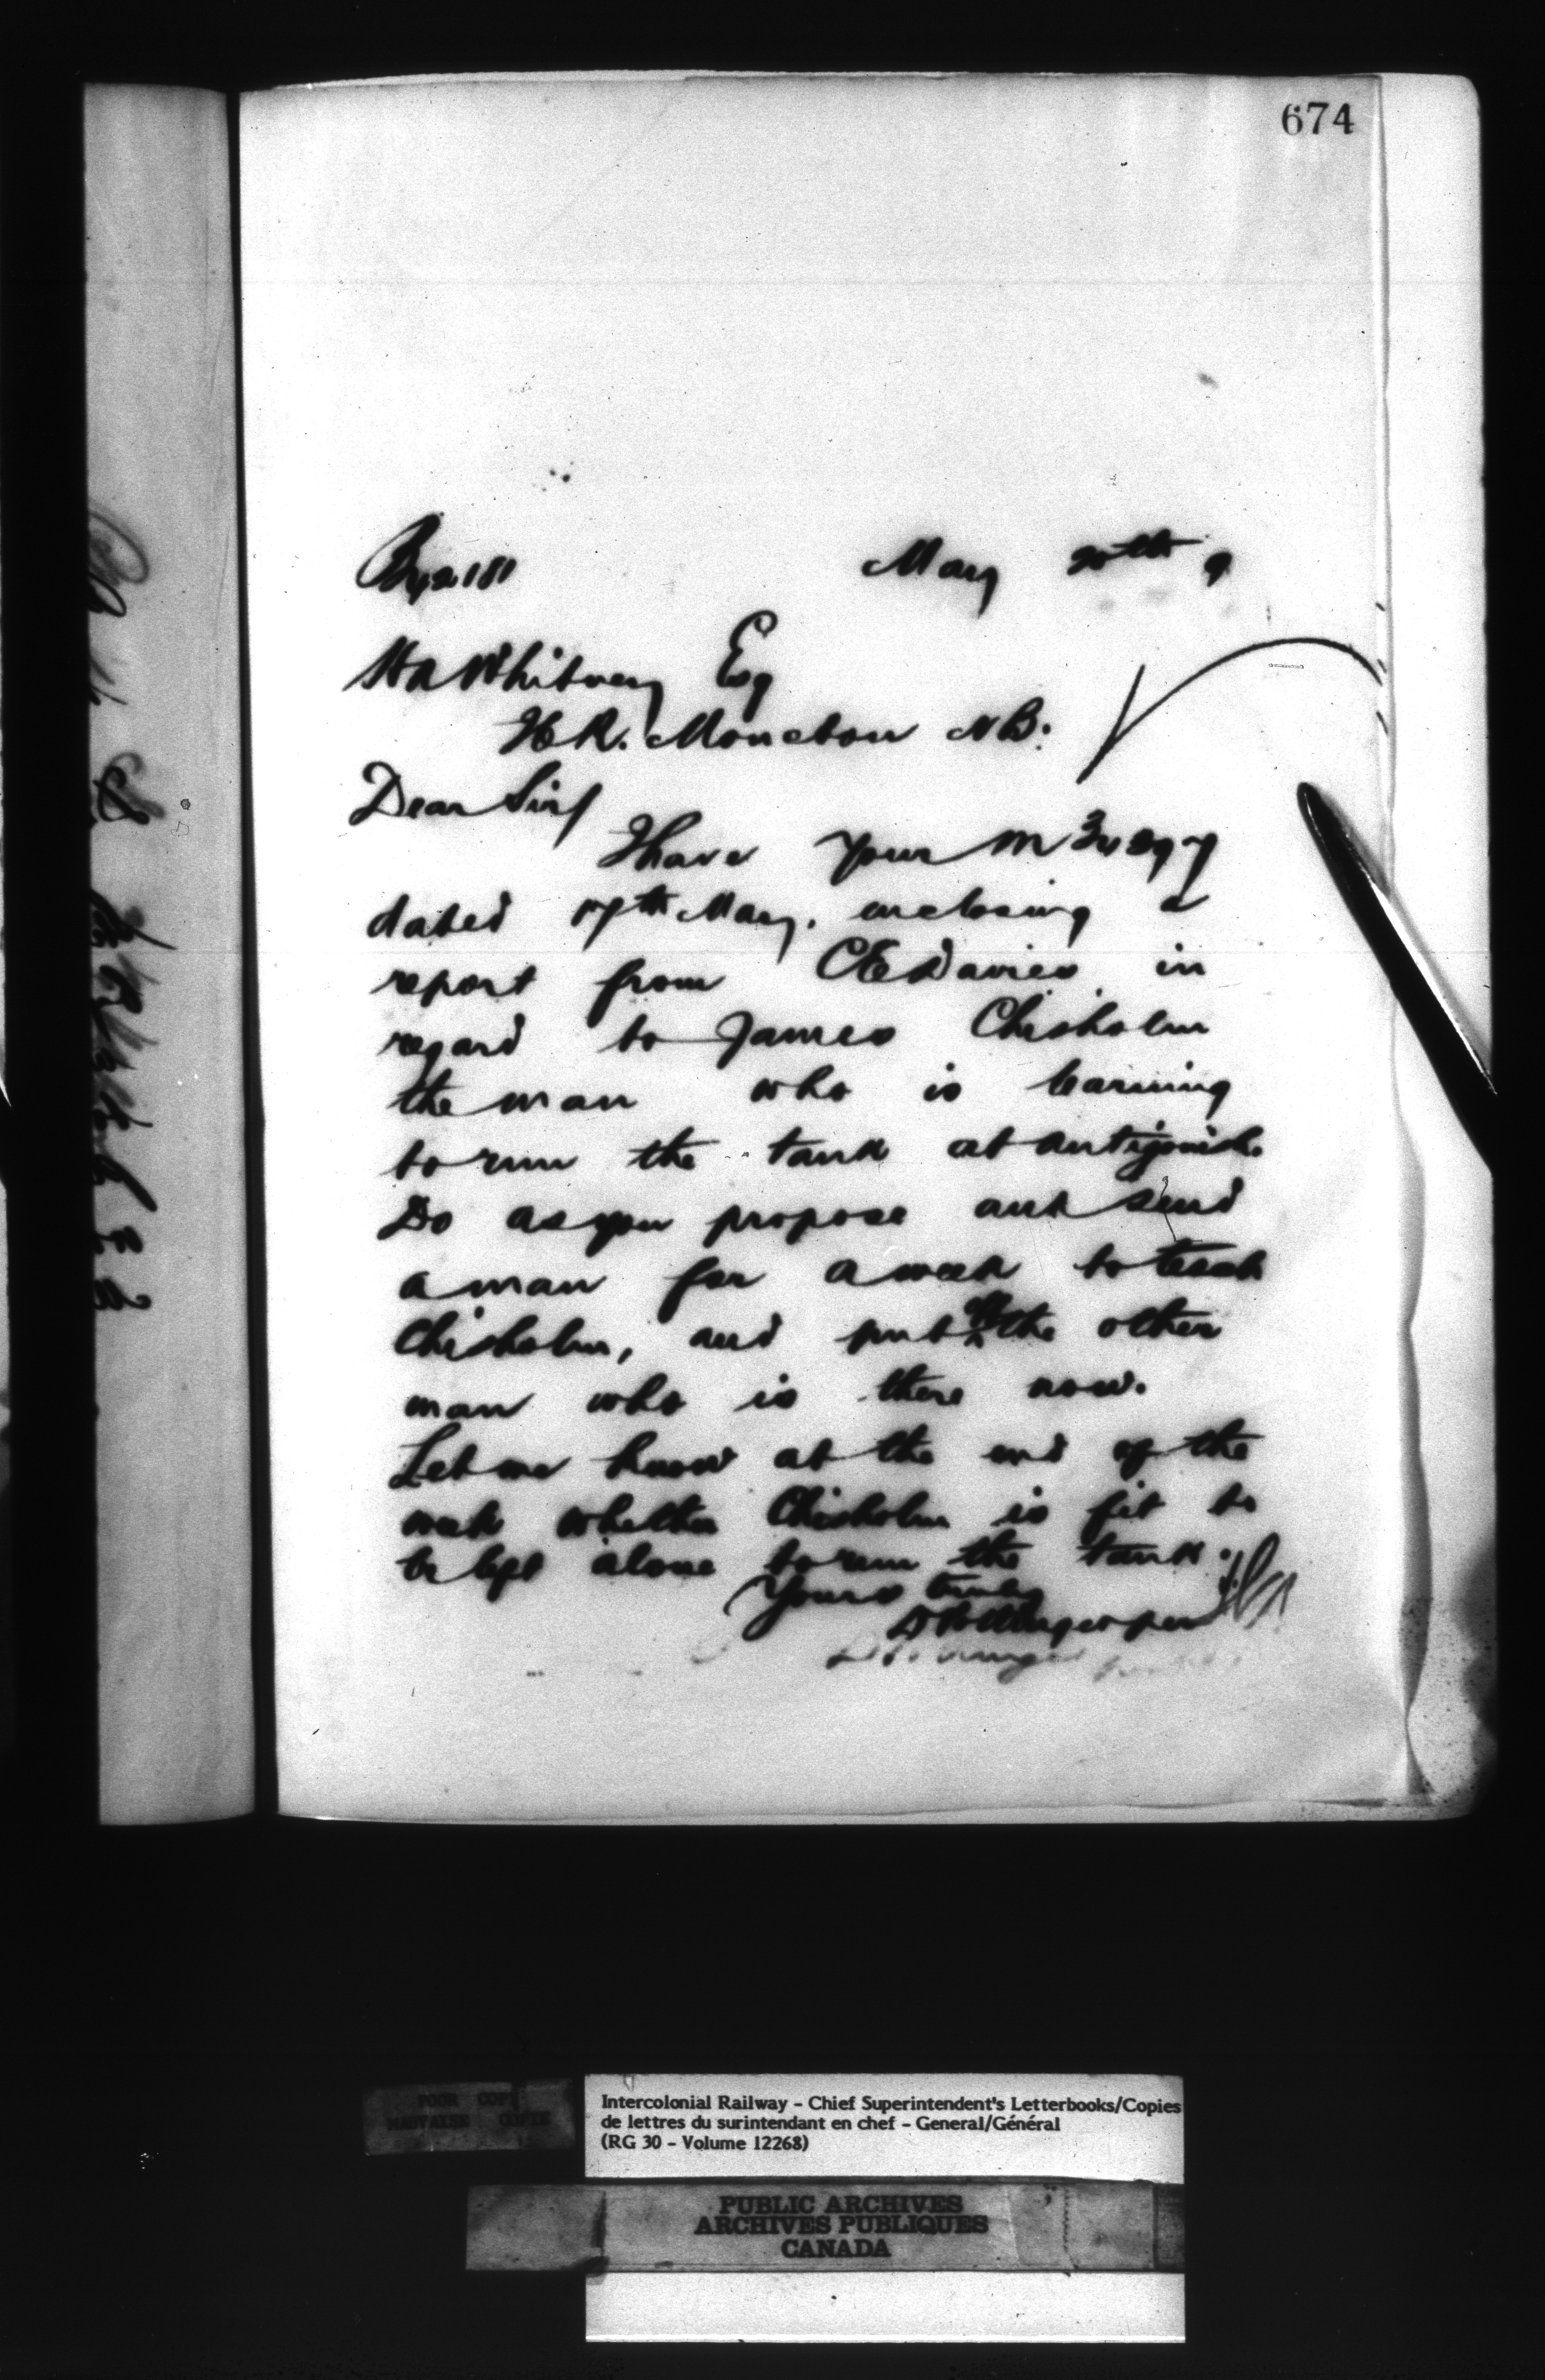 674
May 20th 9
H A Whitney Esq
Moncton NB.
Dear Sir/
I have your M
dated 17th May, enclosing a
report from C E Davies in
regard to James Chisholm
the man who is learning
to run the tank at Antigonish.
Do as you propose and send
a man for a week to teach
Chisholm, and put off the other
man who is there now.
Let me know at the end of the
week whether Chisholm is fit to
be left alone to run the tank.
Yours truly
D Pottinger per
POOR COPY
MAUVAISE COPIE
Intercolonial Railway - Chief Superintendent's Letterbooks/Copies
de lettres du surintendant en chef - General/Général
(RG 30 - Volume 12268)
PUBLIC ARCHIVES
ARCHIVES PUBLIQUES
CANADA